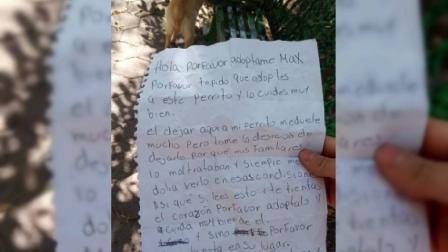 Hola PorFavor adoptame MAX
PorFavor te pido que adoptes
a este Perrito y lo cuides muy
bien.
el dejar aqui a mi Perrito me duele
mucho Pero tome la desicion de
dejarlo Por que mis Familiares
lo maltrataban y siempre me
dolia verlo en esas condiciones
asi que si lees esto y te tienta
el corazon PorFavor adoptalo y
cuida muy bien de el,
y sino PorFavor
la nota en su lugar.